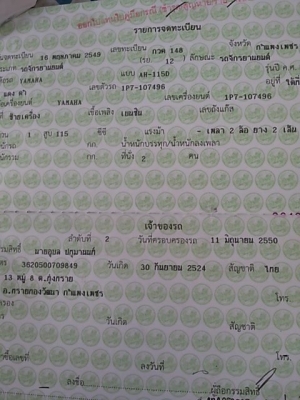 รายการจดทะเบียน
วันจดทะเบียน 16 พฤษภาคม 2549 เลขทะเบียน กวค 148 จังหวัด กำแพงเพชร
รถจักรยานยนต์ (รย. 12 ) ลักษณะ รถจักรยานยนต์
YAMAHA แบบ AH-115D รุ่นปี ค.ศ.
แดง ดำ เลขตัวรถ 1P7-107496 อยู่ที่
YAMAHA เลขเครื่องยนต์ 1P7-107496
ซ้ายเครื่อง เชื้อเพลิง เบนซิน เลขถังแก๊ส
1 สูบ 115 ซีซี แรงม้า - เพลา 2 ล้อ ยาง 2 เส้น
กก. น้ำหนักบรรทุก/น้ำหนักลงเพลา
กก. ที่นั่ง 2 คน
เจ้าของรถ
ลำดับที่ 2 วันที่ครอบครองรถ 11 มิถุนายน 2550
3620500709849 วันเกิด 30 กันยายน 2524 สัญชาติ ไทย
13 หมู่ 8 ต.ทุ่งทราย
อ.ทรายทองวัฒนา กำแพงเพชร โทร.
วันเกิด สัญชาติ
โทร.
ลงวันที่
ลงชื่อ ผู้ถือกรรมสิทธิ์